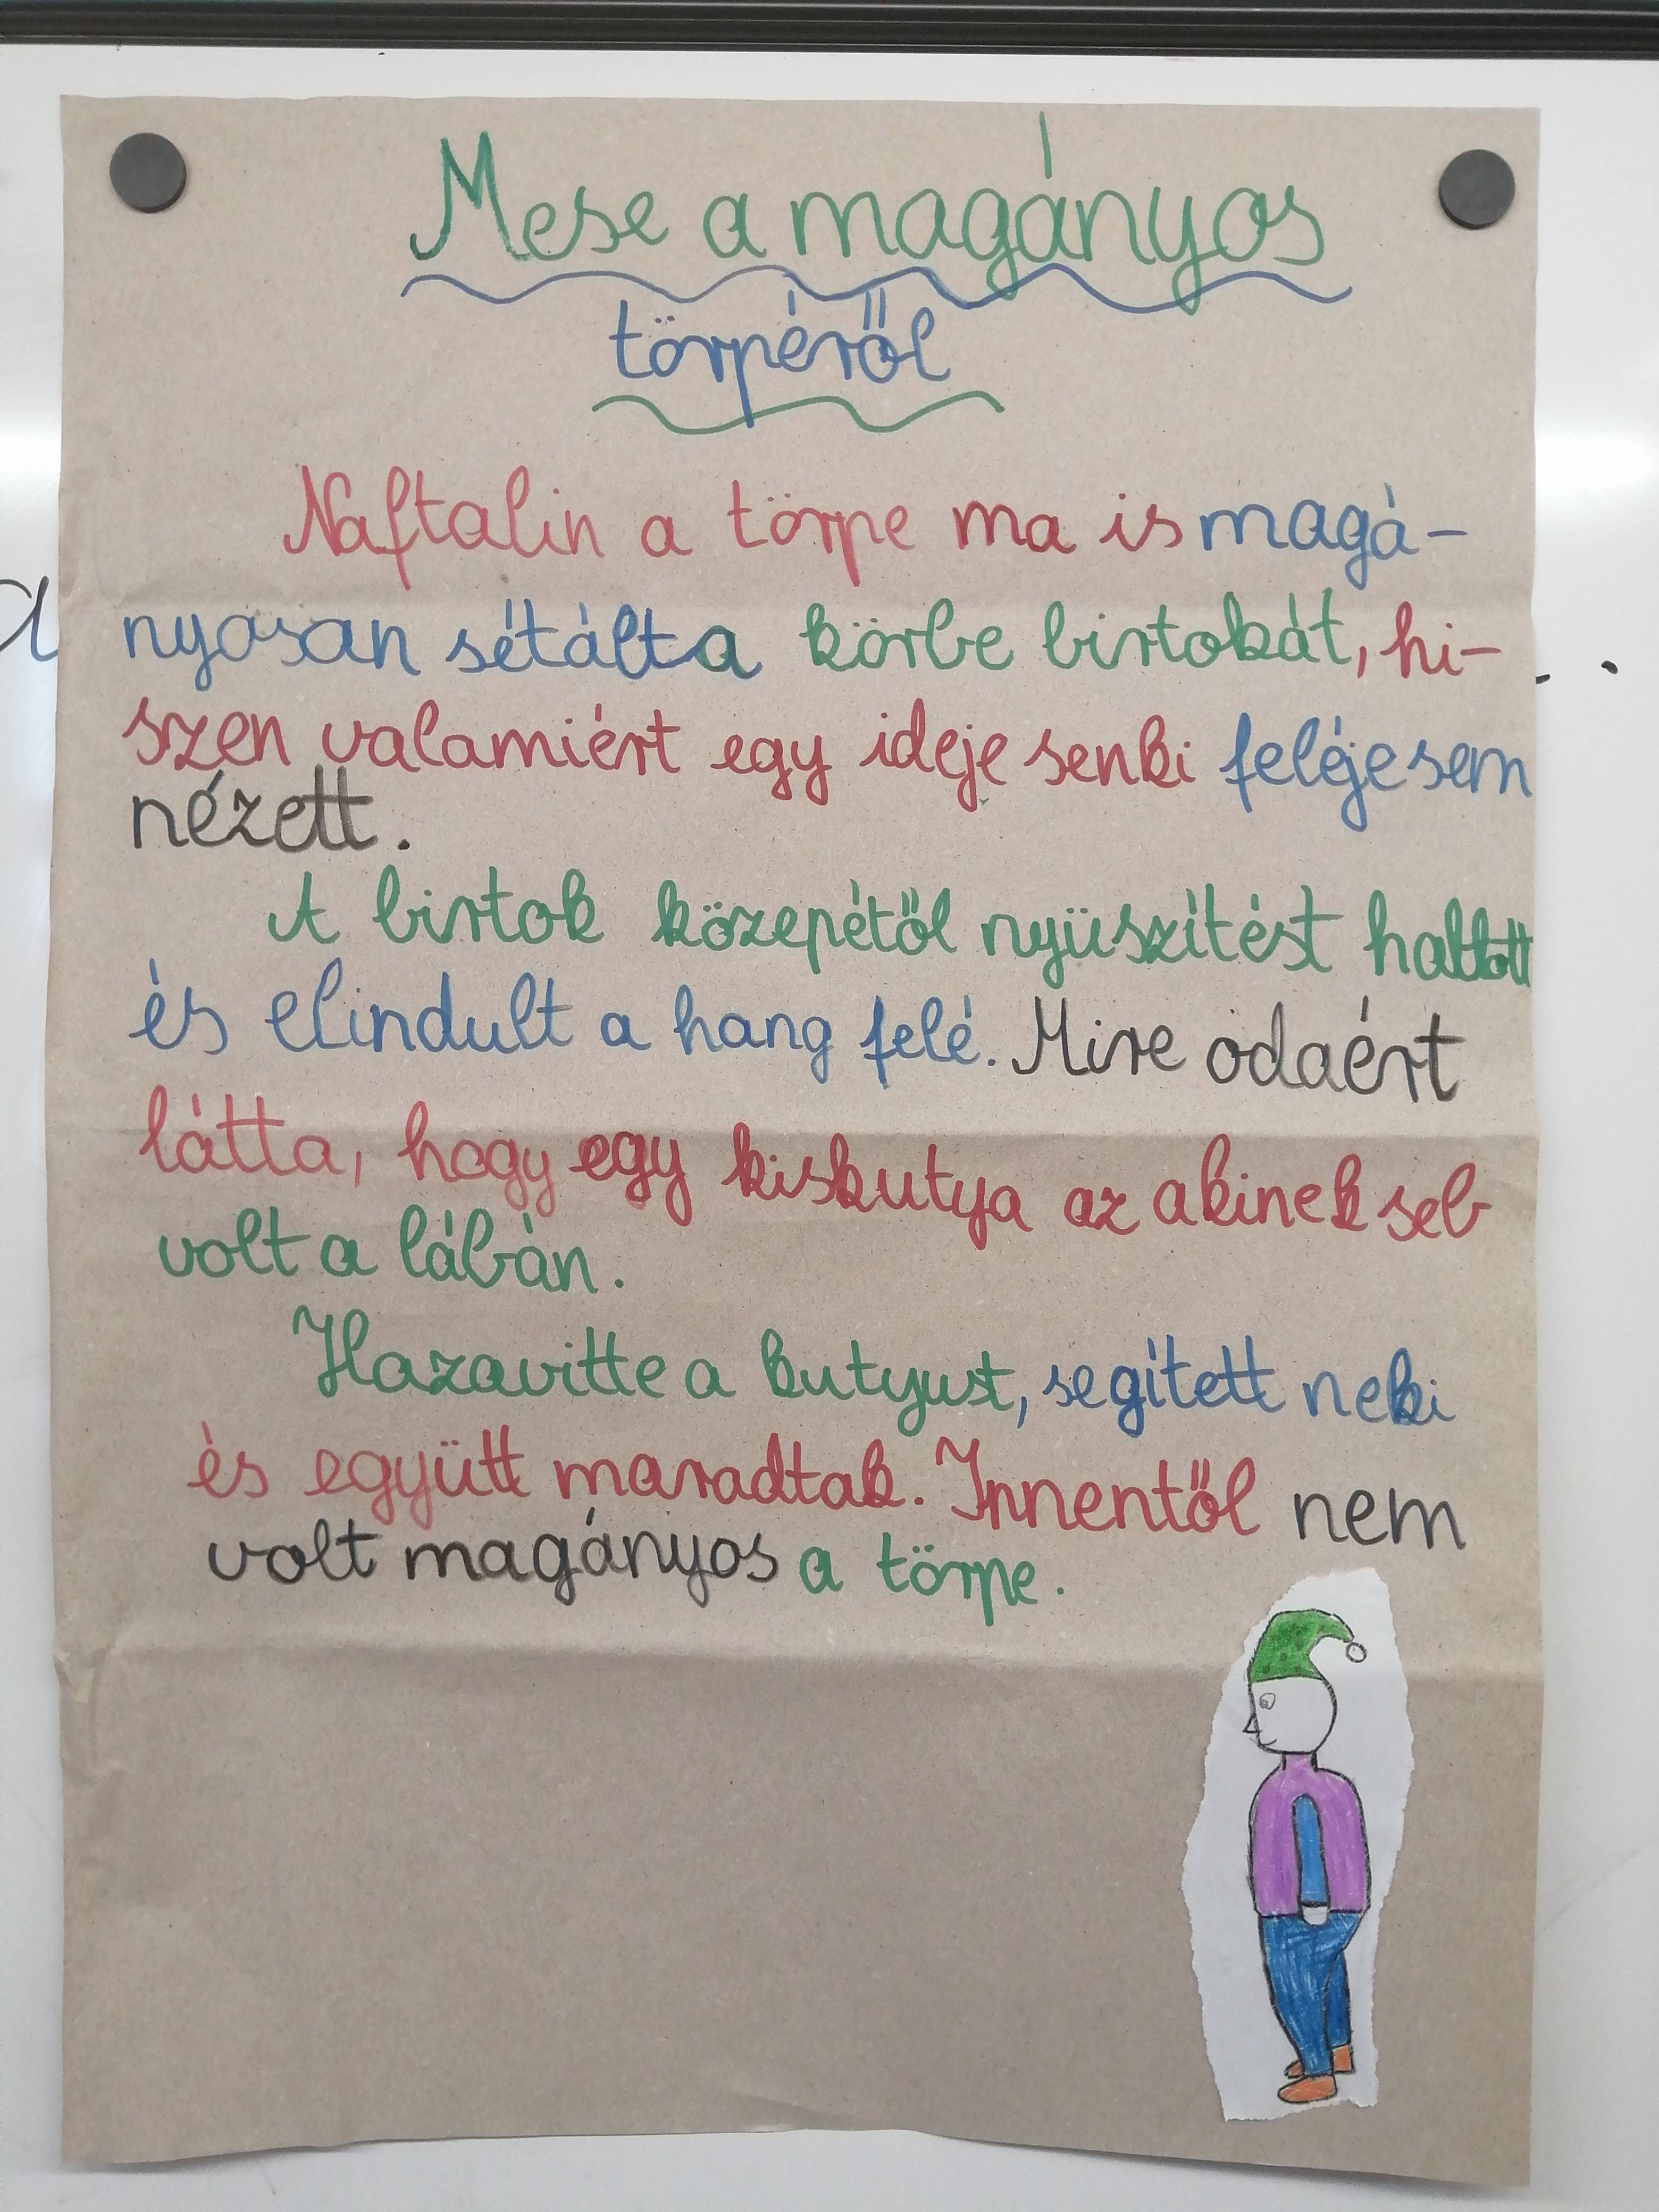 Mese a magányos
törpéről
Naftalin a törpe ma is magá-
nyosan sétálta körbe birtokát, hi-
szen valamiért egy ideje senki feléje sem
nézett.
A birtok közepétől nyüszítést hallott
és elindult a hang felé. Mire odaért
látta, hogy egy kiskutya az akinek seb
volt a lábán.
Hazavitte a kutyust, segített neki
és együtt maradtak. Innentől nem
volt magányos a törpe.